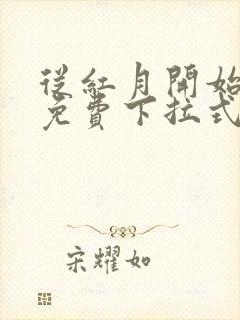 從紅月開始
免費下拉式
宋耀如